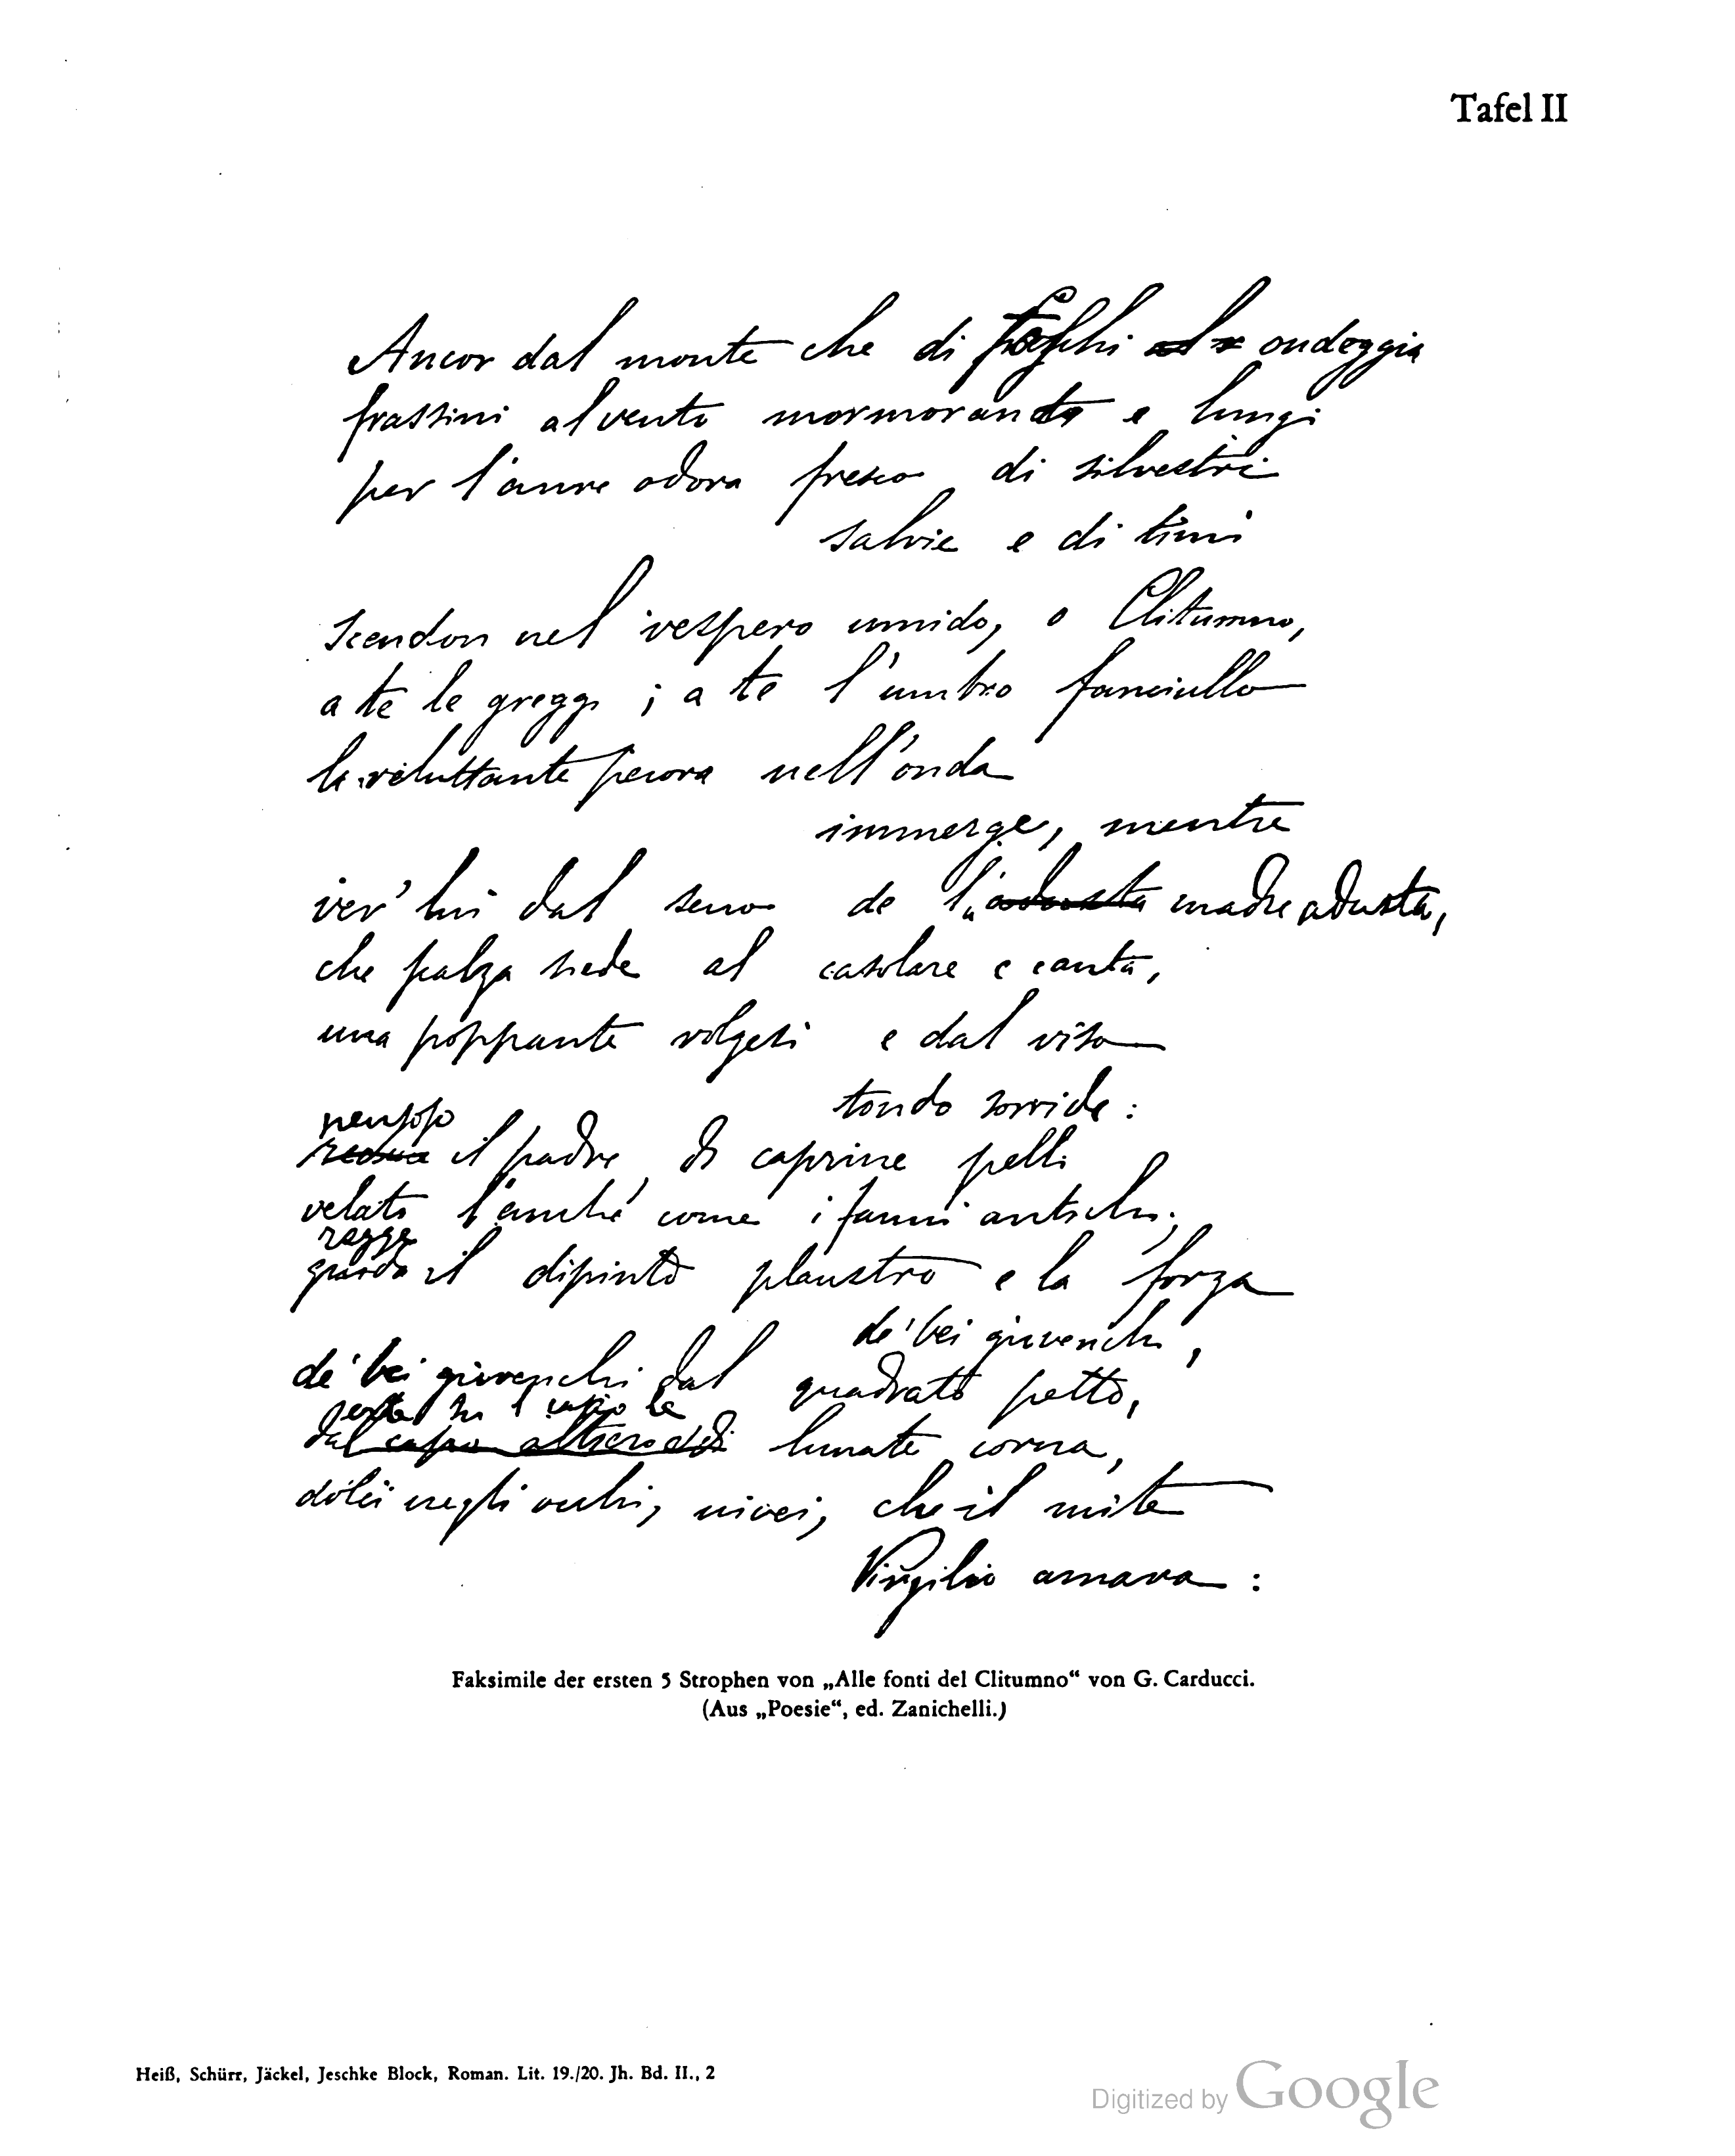 Tafel II
Ancor dal monte che di foschi ondeggia
frassini al vento mormoranti e lungi
per l'aure odora fresco di silvestri
salvie e di timi
scendon nel vespero umido, o Clitumno,
a te le greggi; a te l'umbro fanciullo
la riluttante pecora nell'onda
immerge, mentre
ver' lui dal seno de la madre adusta,
che scalza siede al casolare e canta,
una poppante volgesi e dal viso
tondo sorride:
pensoso
il padre, di caprine pelli
velato l'anche come i fauni antichi,
regge
guarda il dipinto plaustro e la forza
de' bei giuvenchi,
de' bei giuvenchi dal quadrato petto,
erte su 'l capo le
dal capo lunate corna,
dolci negli occhi, nivei, che il mite
Virgilio amava:
Faksimile der ersten 5 Strophen von „Alle fonti del Clitumno“ von G. Carducci.
(Aus „Poesie“, ed. Zanichelli.)
Heiß, Schürr, Jäckel, Jeschke Block, Roman. Lit. 19./20. Jh. Bd. II., 2
Digitized by Google